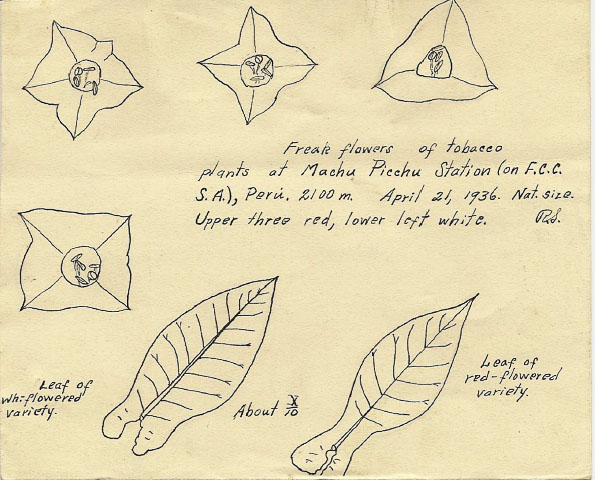 Freak flowers of tobacco
plants at Machu Picchu Station (on F.C.C.
S.A.), Perú. 2100 m. April 21, 1936. Nat. size.
Upper three red, lower left white. RS.
Leaf of
wh-flowered
variety.
About X/10
Leaf of
red-flowered
variety.